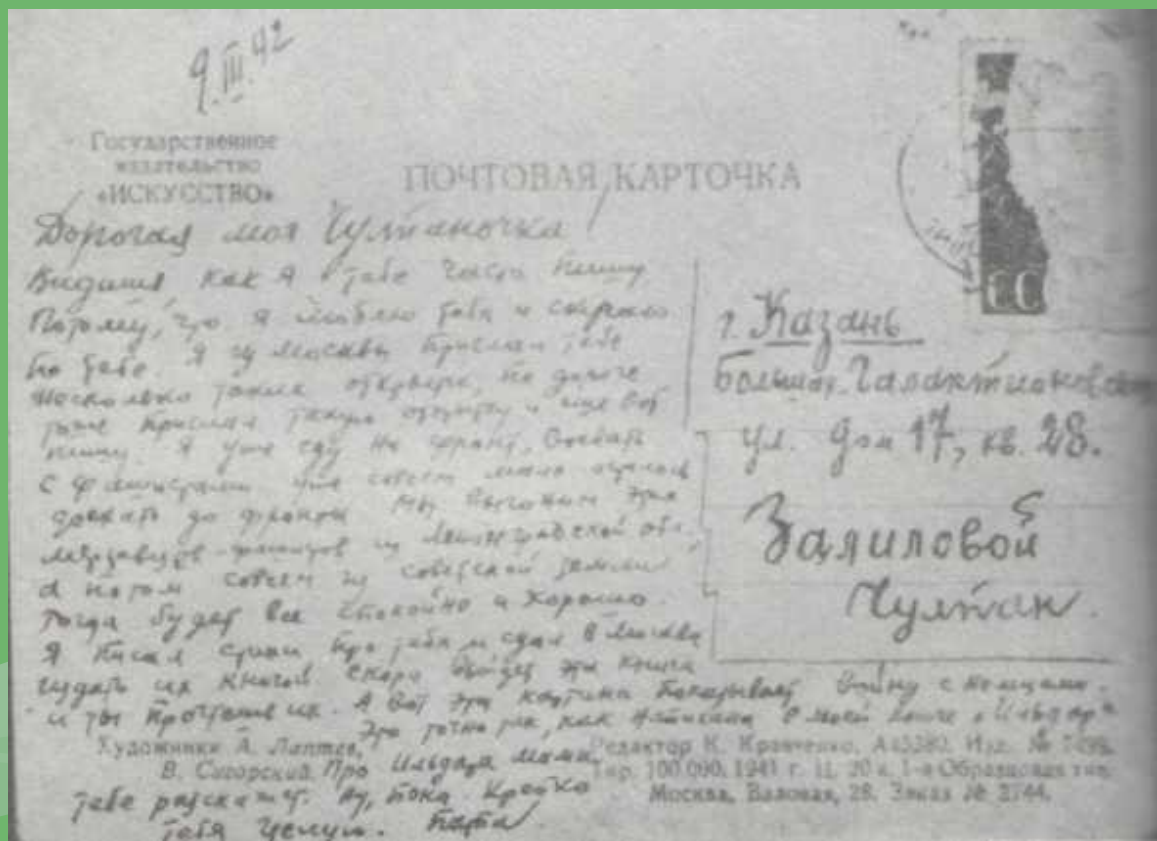 9.III.42
Государственное
издательство
«ИСКУССТВО»
ПОЧТОВАЯ КАРТОЧКА
Дорогая моя Чулпаночка
Видишь, как я тебе часто пишу
Потому, что я люблю тебя и скучаю
по тебе. Я из Москвы прислал тебе
несколько таких открыток, по дороге
тоже прислал такую открытку и еще вот
пишу. Я уже еду на фронт, воевать
с фашистами. Уже совсем мало осталось
доехать до фронта. Мы выгоним этих
мерзавцев-фашистов из Ленинградской обл.,
а потом совсем из советской земли.
Тогда будет все спокойно и хорошо.
Я писал стихи про тебя и сдал в Москве
издать их книгой. Скоро выйдет эта книга
и ты прочтешь их. А вот эта картина показывает войну с немцами.
Это точно так, как написано в моей книге „Ильдар"
Про Ильдара мама
тебе расскажет. Ну, пока. Крепко
тебя целую. Папа
г. Казань
Большая Галактионовская
ул. дом 17, кв. 28.
Залиловой
Чулпан.
Художники А. Лаптев,
В. Сигорский.
Редактор К. Кравченко, А45380. Изд. №
Тир. 100.000. 1941 г. Ц. 20 к. 1-я Образцовая тип.
Москва, Валовая, 28. Заказ № 2744.